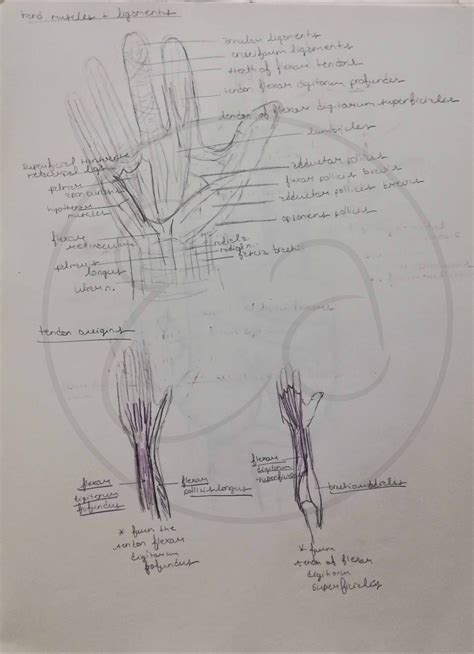 hand muscles + ligaments
annular ligaments
cruciform ligaments
sheath of flexor tendons
tendon flexor digitorum profundus
tendon of flexor digitorum superficialis
lumbricles
superficial transverse
metacarpal liga
palmar
aponeurosis
hypothenar
muscles
flexor
retinaculum
palmaris
longus
ulnar n.
adductor pollicis
flexor pollicis brevis
abductor pollicis brevis
opponens pollicis
radial a.
radial n.
tendon origins
flexor
digitorum
profundus
flexor
pollicis longus
* from the
tendon flexor
digitorum
profundus
flexor
digitorum
superficialis
brachioradicles
* from
tendon of flexor
digitorum
superficialis